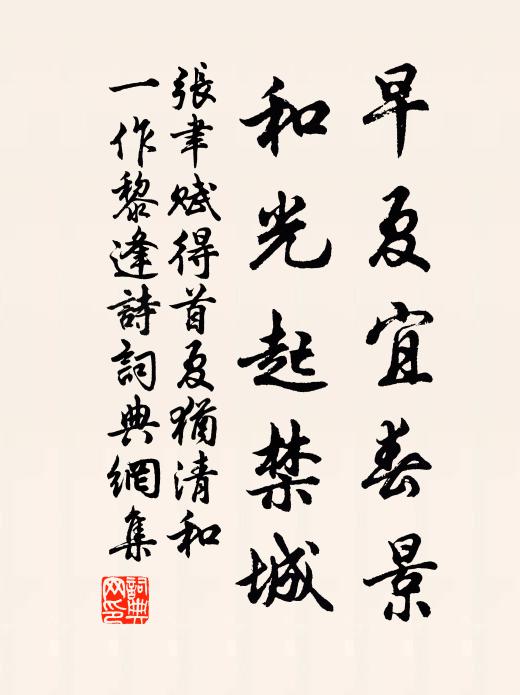 早夏宜春景
和光起禁城
張聿賦得首夏猶清和
一作黎逢詩詞典網集
詞典网印